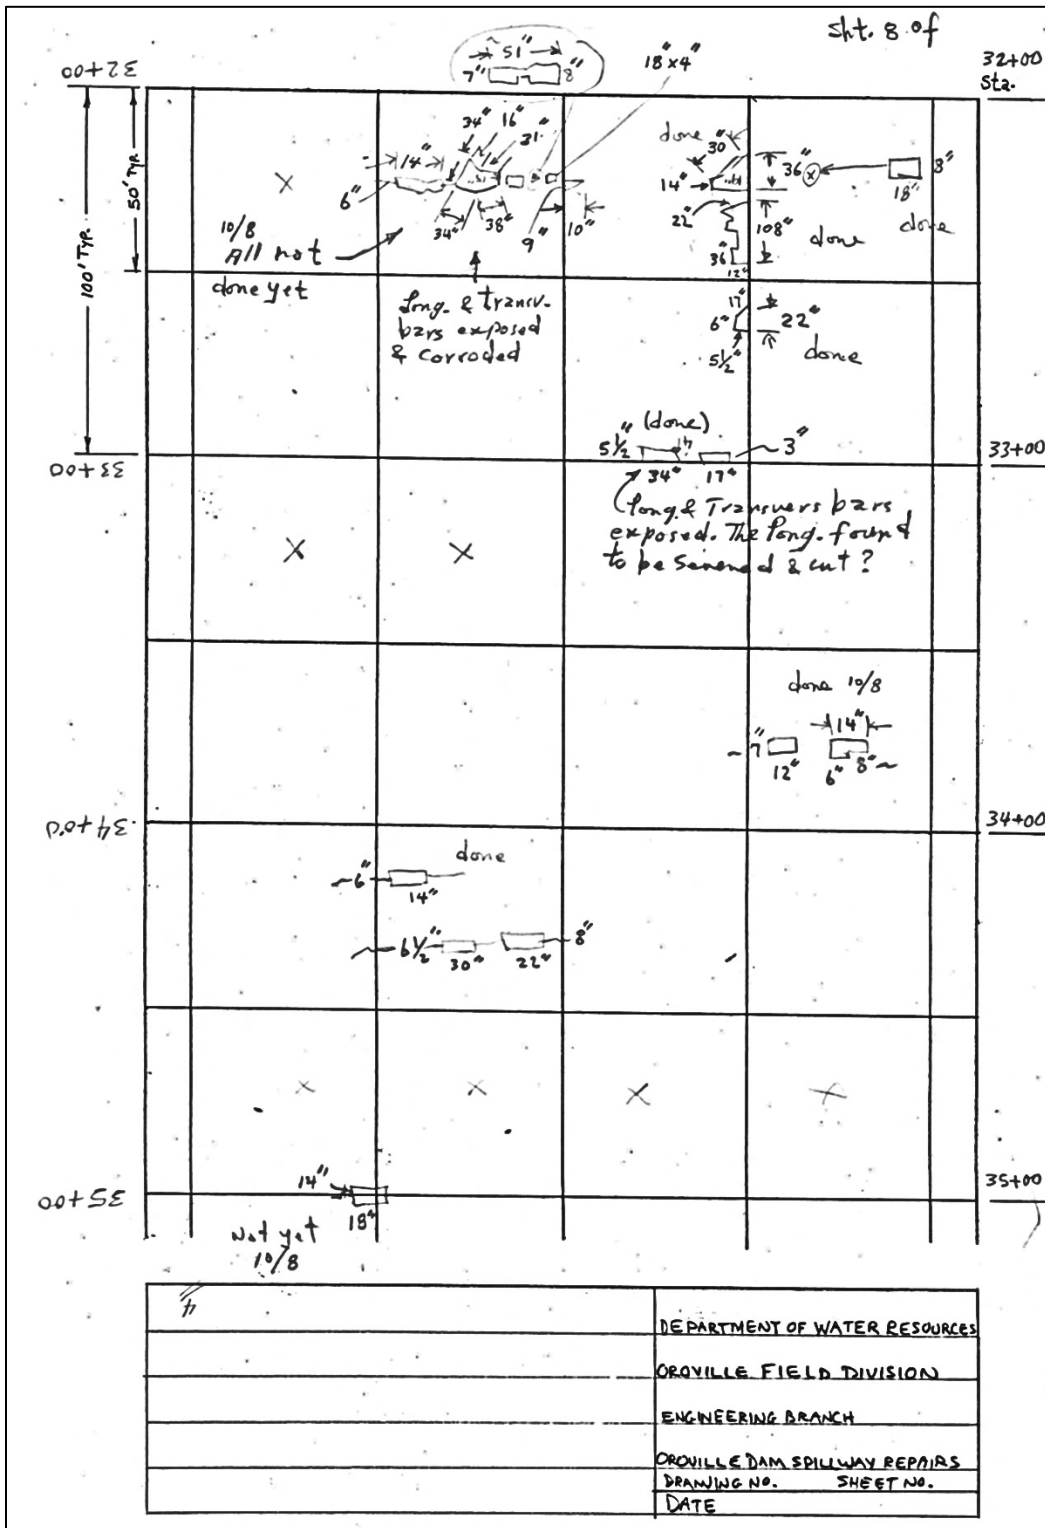 Sht. 8 of
32+00
32+00
Sta.
51"
7"
8"
18"x4"
34"
16"
31"
14"
6"
34"
38"
9"
10"
50' TYP.
100' TYP.
10/8
All not
done yet
Long. & transv.
bars exposed
& corroded
done
30"
14"
36"
x
3"
18"
done
22"
108"
done
36"
12"
17"
6"
22"
5½"
done
33+00
33+00
(done)
5½"
4"
3"
34"
17"
Long. & Transvers bars
exposed. The long. found
to be & cut?
done 10/8
14"
~7"
12"
6"
8"~
34+00
34+00
done
~6"
14"
6½"
30"
22"
8"
35+00
35+00
14"
18"
Not yet
10/8
4
DEPARTMENT OF WATER RESOURCES
OROVILLE FIELD DIVISION
ENGINEERING BRANCH
OROVILLE DAM SPILLWAY REPAIRS
DRAWING NO. SHEET NO.
DATE